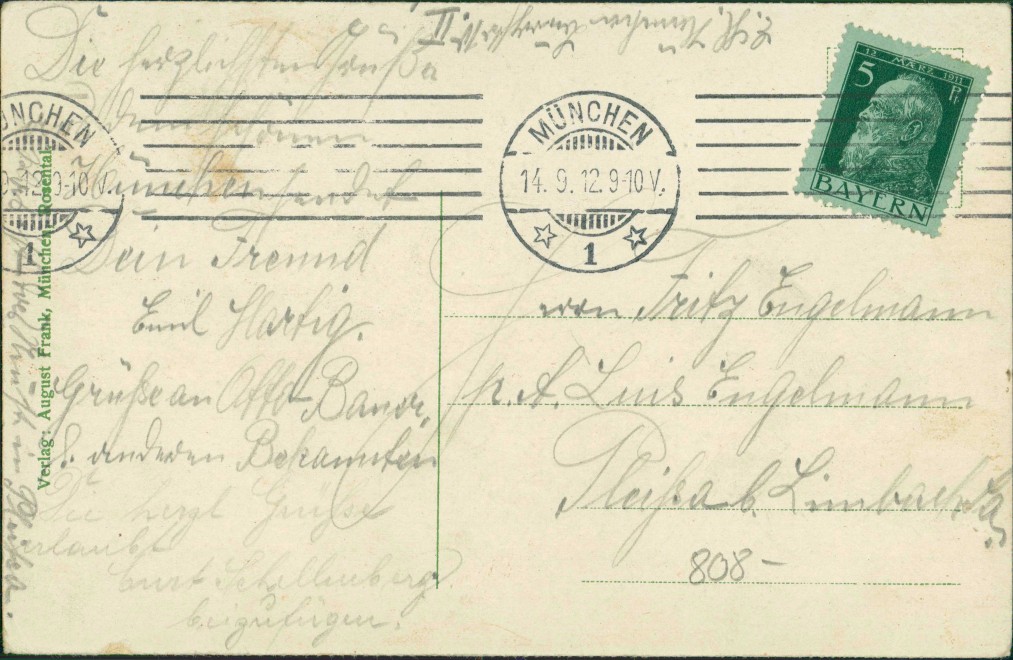 Die herzlichsten Grüße
aus
dem schönen
München sendet
Dein Freund
Emil Hartig.
Grüße an Otto
& anderen Bekannten
Die herzl Grüße
erlaubt
Curt Schellenberg
beizufügen.
II
MÜNCHEN
12 9-10 V.
1
MÜNCHEN
14. 9. 12. 9-10 V.
1
12. MÄRZ 1911
5 Pf.
BAYERN
Verlag: August Frank, München, Rosental
Herrn Fritz Engelmann
p. A. Luis Engelmann
Pleißa b. Limbach Sa.
808 –